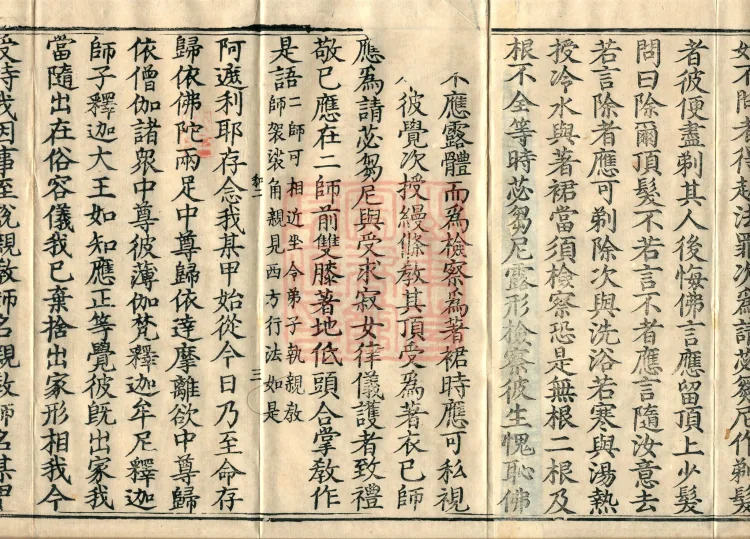 者彼便盡剃其人後悔佛言應留頂上少髮
問曰除爾頂髮不若言不者應言隨汝意去
若言除者應可剃除次與洗浴若寒與湯熱
授冷水與著裙當須檢察恐是無根二根及
根不全等時苾芻尼露形檢察彼生愧恥佛
不應露體而為檢察為著裙時應可私視
彼覺次授縵條教其頂受為著衣已師
應為請苾芻尼與受求寂女律儀護者致禮
敬已應在二師前雙膝著地低頭合掌教作
是語二師可相近坐令弟子執親教
師袈裟角親見西方行法如是
阿遮利耶存念我某甲始從今日乃至命存
歸依佛陀兩足中尊歸依達摩離欲中尊歸
依僧伽諸眾中尊彼薄伽梵釋迦牟尼釋迦
師子釋迦大王如知應正等覺彼既出家我
當隨出在俗容儀我已棄捨出家形相我今
受持我因事至說親教師名親教師名某甲